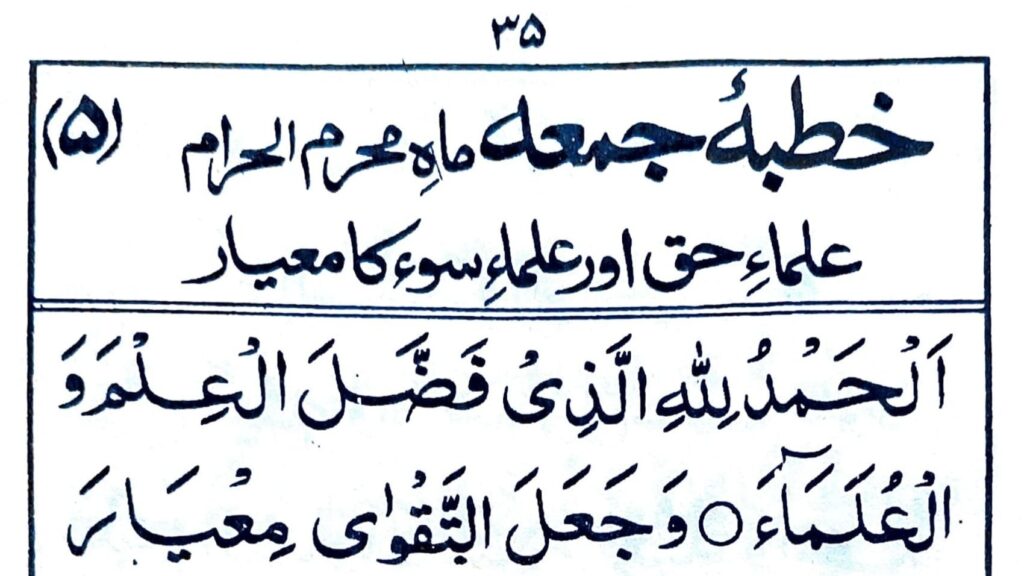 ۳۵
خطبۂ جمعہ ماہِ محرم الحرام (۵)
علماءِ حق اور علماءِ سوء کا معیار
اَلْحَمْدُ لِلّٰهِ الَّذِیْ فَضَّلَ الْعِلْمَ وَ
الْعُلَمَآءَ ○ وَجَعَلَ التَّقْوٰی مِعْیَارَ